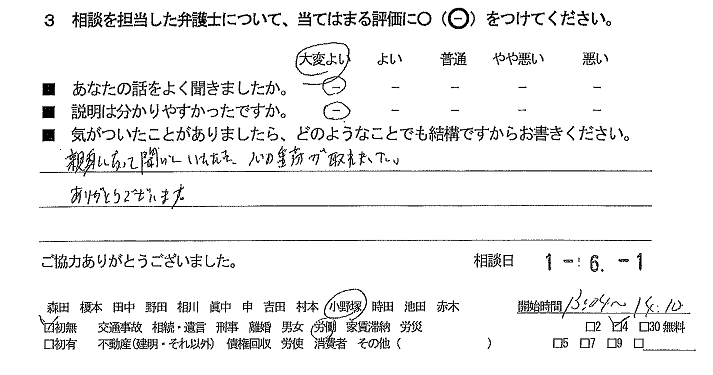 3 相談を担当した弁護士について、当てはまる評価に○（⊖）をつけてください。
大変よい よい 普通 やや悪い 悪い
■ あなたの話をよく聞きましたか。 － － － － －
■ 説明は分かりやすかったですか。 － － － － －
■ 気がついたことがありましたら、どのようなことでも結構ですからお書きください。
親身になって聞いていただき、心の重荷が取れました。
ありがとうございます
ご協力ありがとうございました。 相談日 1－6.－1
森田 榎本 田中 野田 相川 眞中 申 吉田 村本 小野塚 時田 池田 赤木 開始時間 13:04～14:10
☑初無 交通事故 相続・遺言 刑事 離婚 男女 労働 家賃滞納 労災 □2 ☑4 □30 無料
□初有 不動産（建明・それ以外） 債権回収 労使 消費者 その他（ ） □5 □7 □9 □